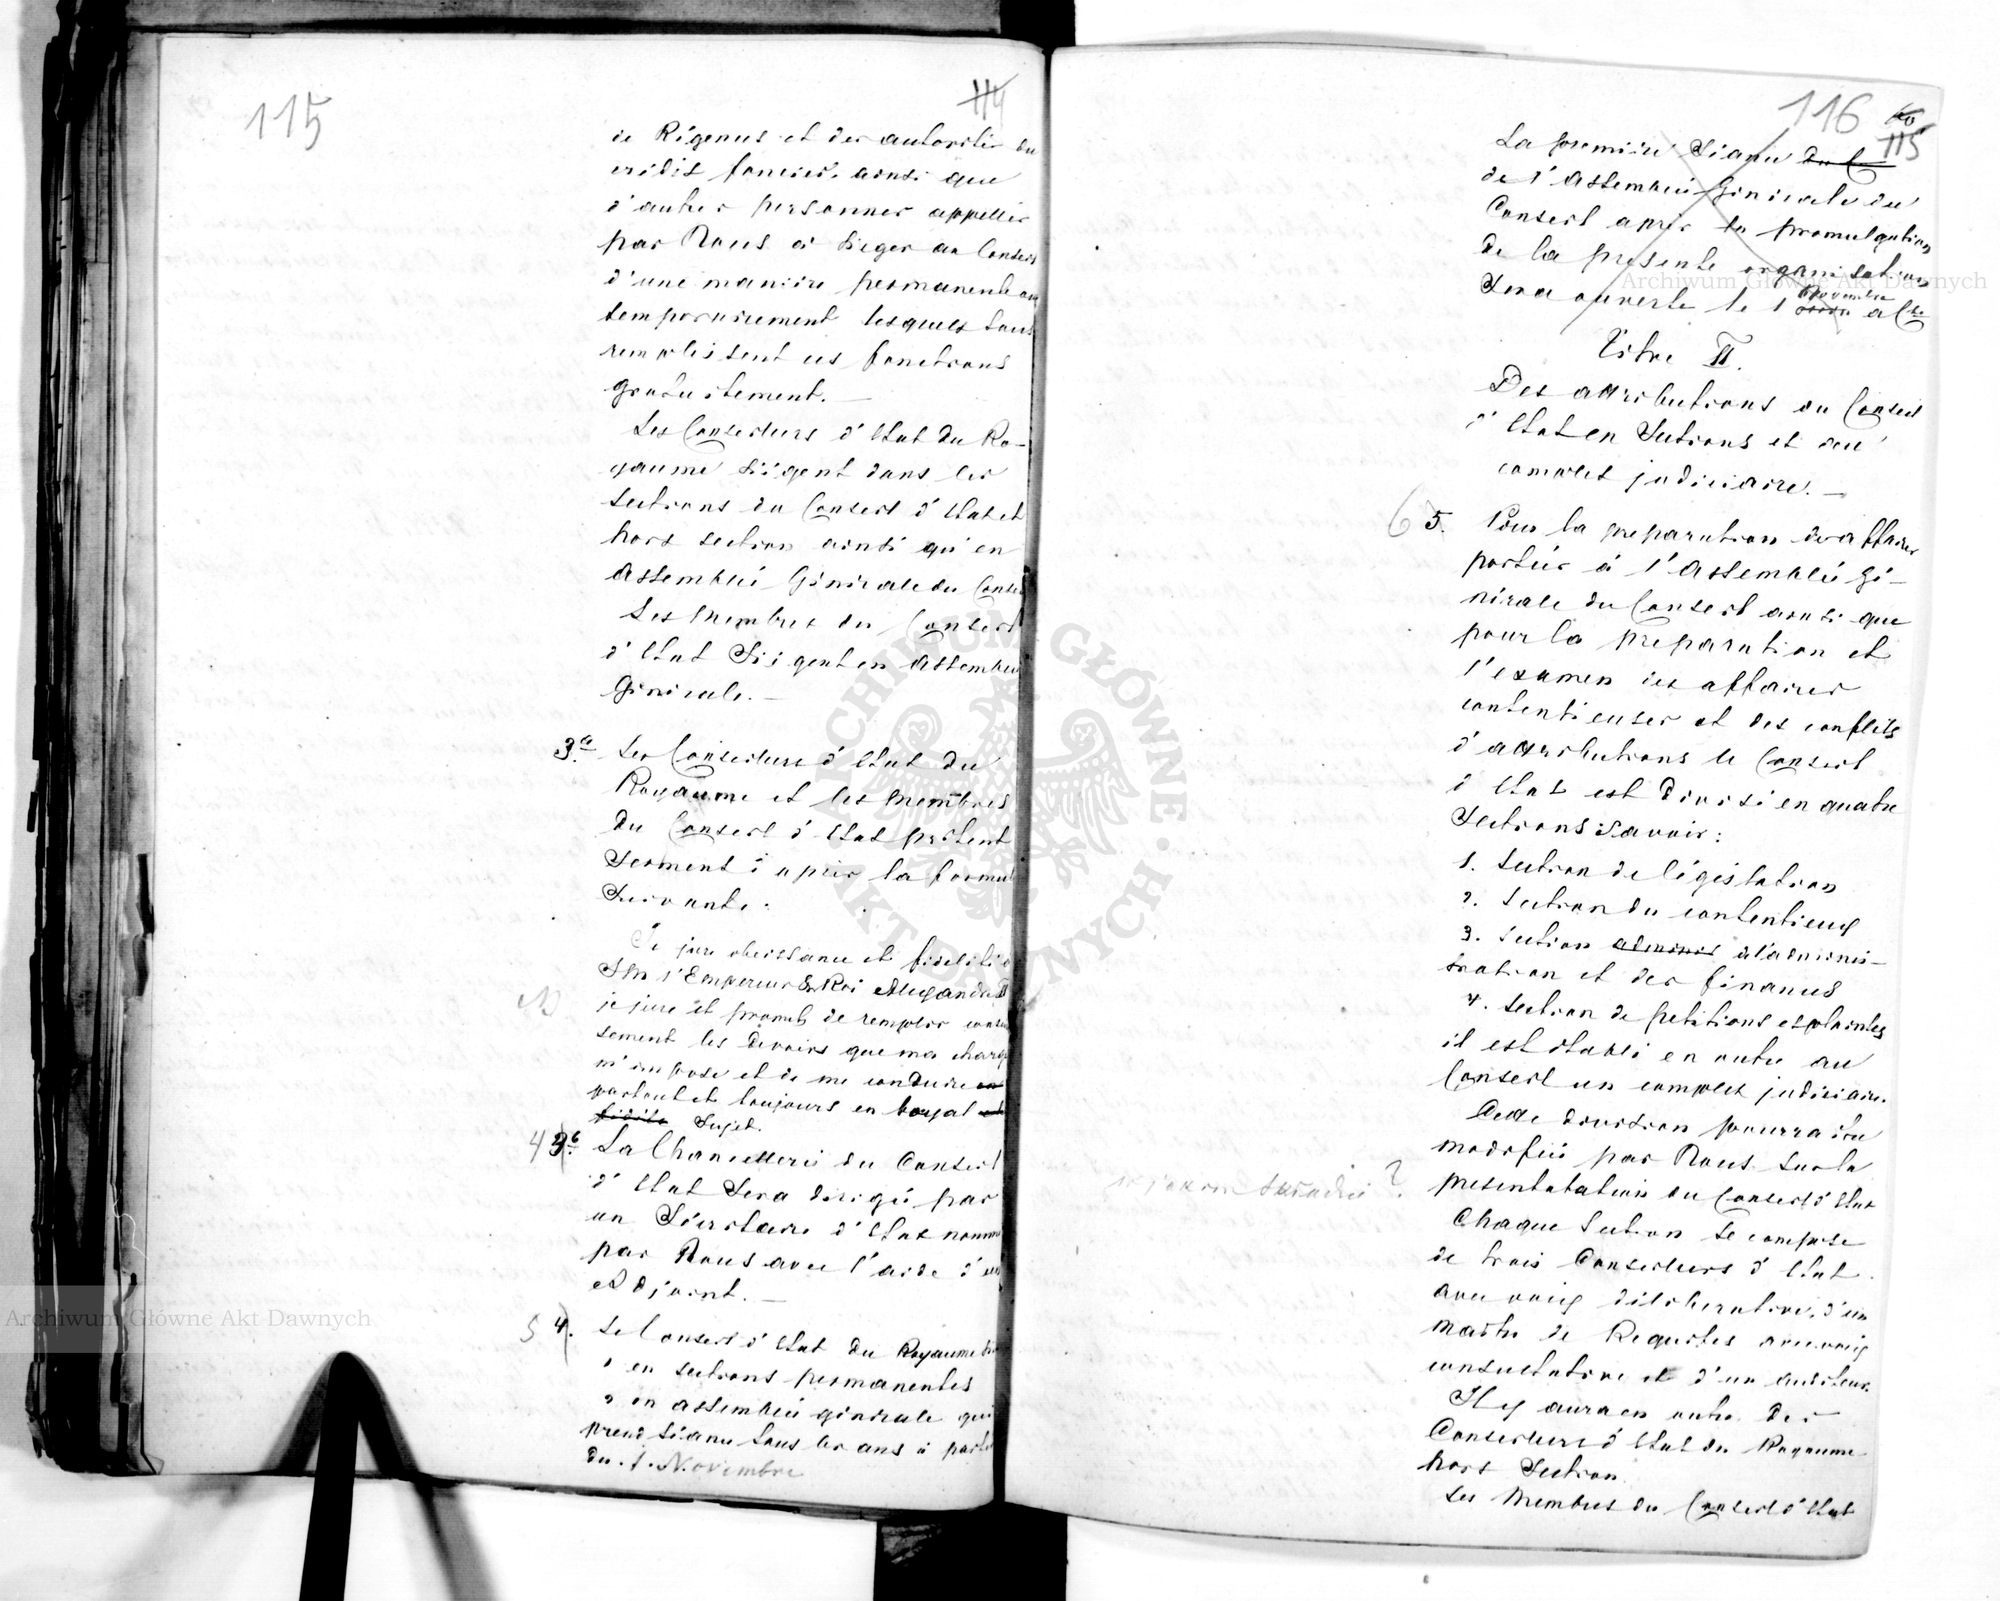 115
114
de Régence et des autorités du
crédit foncier, ainsi que
d'autres personnes appellées
par Nous à sieger au Conseil
d'une manière permanente ou
temporairement lesquels tous
remplissent ces fonctions
gratuitement. —
Les Conseillers d'Etat du Ro-
yaume siègent dans les
sections du Conseil d'Etat et
hors section ainsi qu'en
Assemblée Générale du Conseil
Les Membres du Conseil
d'Etat Siègent en Assemblée
Générale. —
3a. Les Conseillers d'Etat du
Royaume et les Membres
du Conseil d'Etat prêtent
Serment d'après la formule
Suivante:
Je jure obeissance et fidelité à
SM l'Empereur & Roi Alexandre II
je jure et promets de remplir
sement les devoirs que ma charge
m'impose et de me conduire en
partout et toujours en loyal et
fidèle Sujet.
4 3b. La Chancellerie du Conseil
d'Etat Sera dirigée par
un Sécretaire d'Etat nommé
par Nous avec l'aide d'un
Adjoint. —
5 4. Le Conseil d'Etat du Royaume
1 en sections permanentes
2 en assemblée générale qui
prend séance tous les ans à partir
du 1. Novembre
116
115
La première Séance du C
de l'Assemblée Générale du
Conseil après la promulgation
de la présente organisation
Sera ouverte le 1 Novembre a c
Titre II.
Des attributions du Conseil
d'Etat en Sections et du
complet judiciaire. —
6 5. Pour la preparation des affaires
portées à l'Assemblée Gé-
nérale du Conseil ainsi que
pour la preparation et
l'examen des affaires
contentieuses et des conflits
d'attributions le Conseil
d'Etat est divisé en quatre
Sections Savoir:
1. Section de législation
2. Section du contentieux
3. Section adminis d'adminis-
tration et des finances
4. Section de petitions et plaintes
il est établi en outre au
Conseil un complet judiciaire.
Cette division pourra être
modifiée par Nous sur la
presentatation du Conseil d'Etat
Chaque Section se compose
de trois Conseillers d'Etat
avec voix déliberative, d'un
maitre de Requêtes avec voix
consultative et d'un auditeur.
Il y aura en outre des
Conseillers d'Etat du Royaume
hors Section.
Les Membres du Conseil d'Etat
Archiwum Główne Akt Dawnych
Archiwum Główne Akt Dawnych
ARCHIWUM GŁÓWNE AKT DAWNYCH